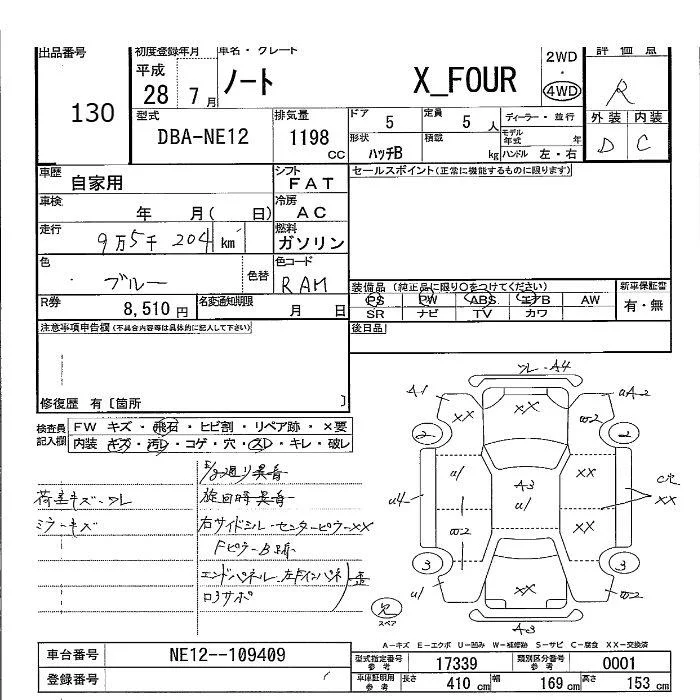 出品番号 初度登録年月 車名・グレード 2WD ・ 4WD 評価点
130 平成 28 7月 ノート X_FOUR R
型式 DBA-NE12 排気量 1198 cc ドア 5 定員 5 人 ディーラー・並行 外装 内装
形状 ハッチB 積載 kg モデル年式 年 ハンドル 左・右 D C
車歴 自家用 シフト FAT セールスポイント(正常に機能するものに限ります)
車検 年 月( 日) 冷房 AC
走行 9万5千204 km 燃料 ガソリン
色 ブルー 色替 色コード RAM
装備品(純正品に限り○をつけてください) 新車保証書
PS PW ABS エアB AW 有・無
SR ナビ TV カワ
R券 8,510円 名変通知期限 月 日 後日品
注意事項申告欄(不具合内容等は具体的に記入して下さい)
修復歴 有〔箇所 〕
検査員記入欄 FW キズ・飛石・ヒビ割・リペア跡・×要
内装 キズ・汚レ・コゲ・穴・スレ・キレ・破レ
荷室キズ・ワレ 旋回時異音
ミラーキズ 右サイドシル・センターピラーXX
Fピラー
エンドパネル
ワレ A4
A1 XX XX
2 2
u1 A3 XX XX
u4 u1 XX
3 3
u1 XX
スペア
A3
A-キズ E-エクボ U-凹み W-補修跡 S-サビ C-腐食 XX-交換済
車台番号 NE12--109409 型式指定番号 参考 17339 類別区分番号 参考 0001
登録番号 車庫証明用 参考 長さ 410 cm 幅 169 cm 高さ 153 cm